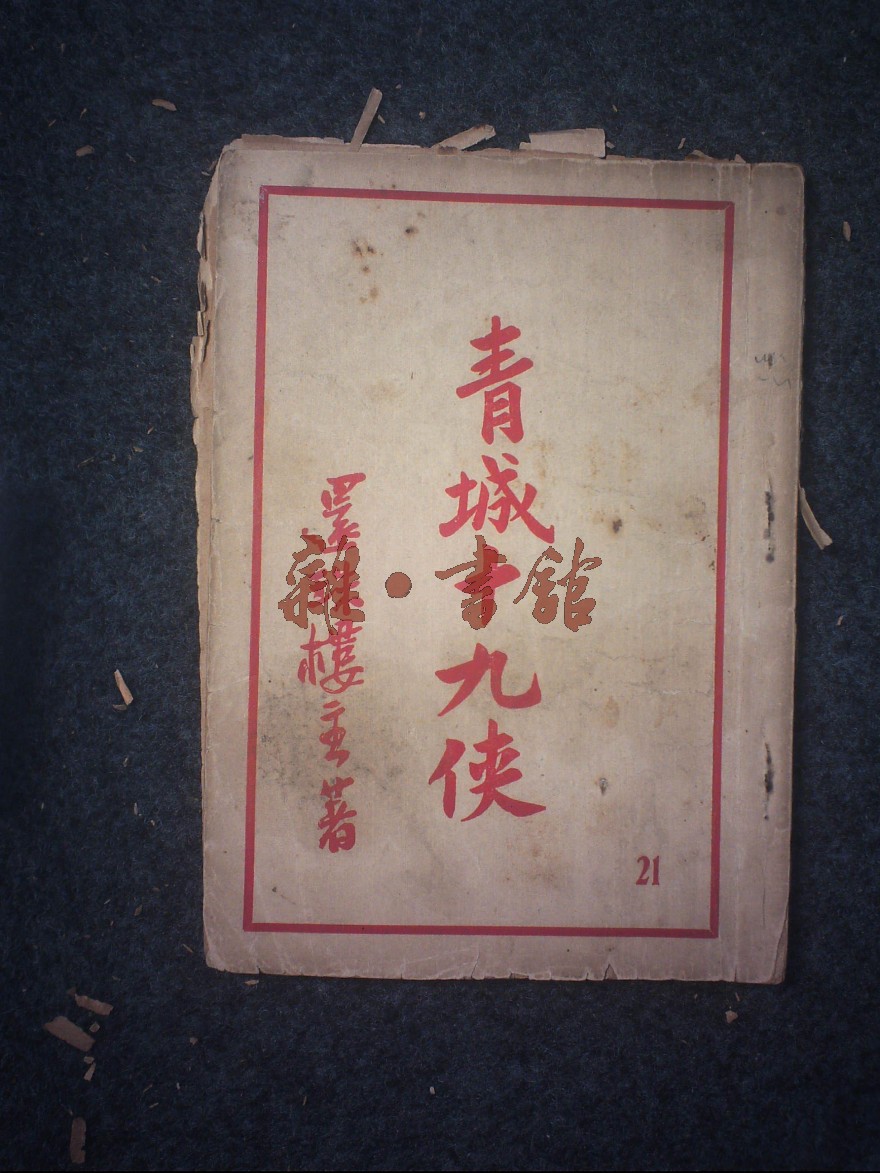 青城十九侠
還珠樓主著
21
雜·書館